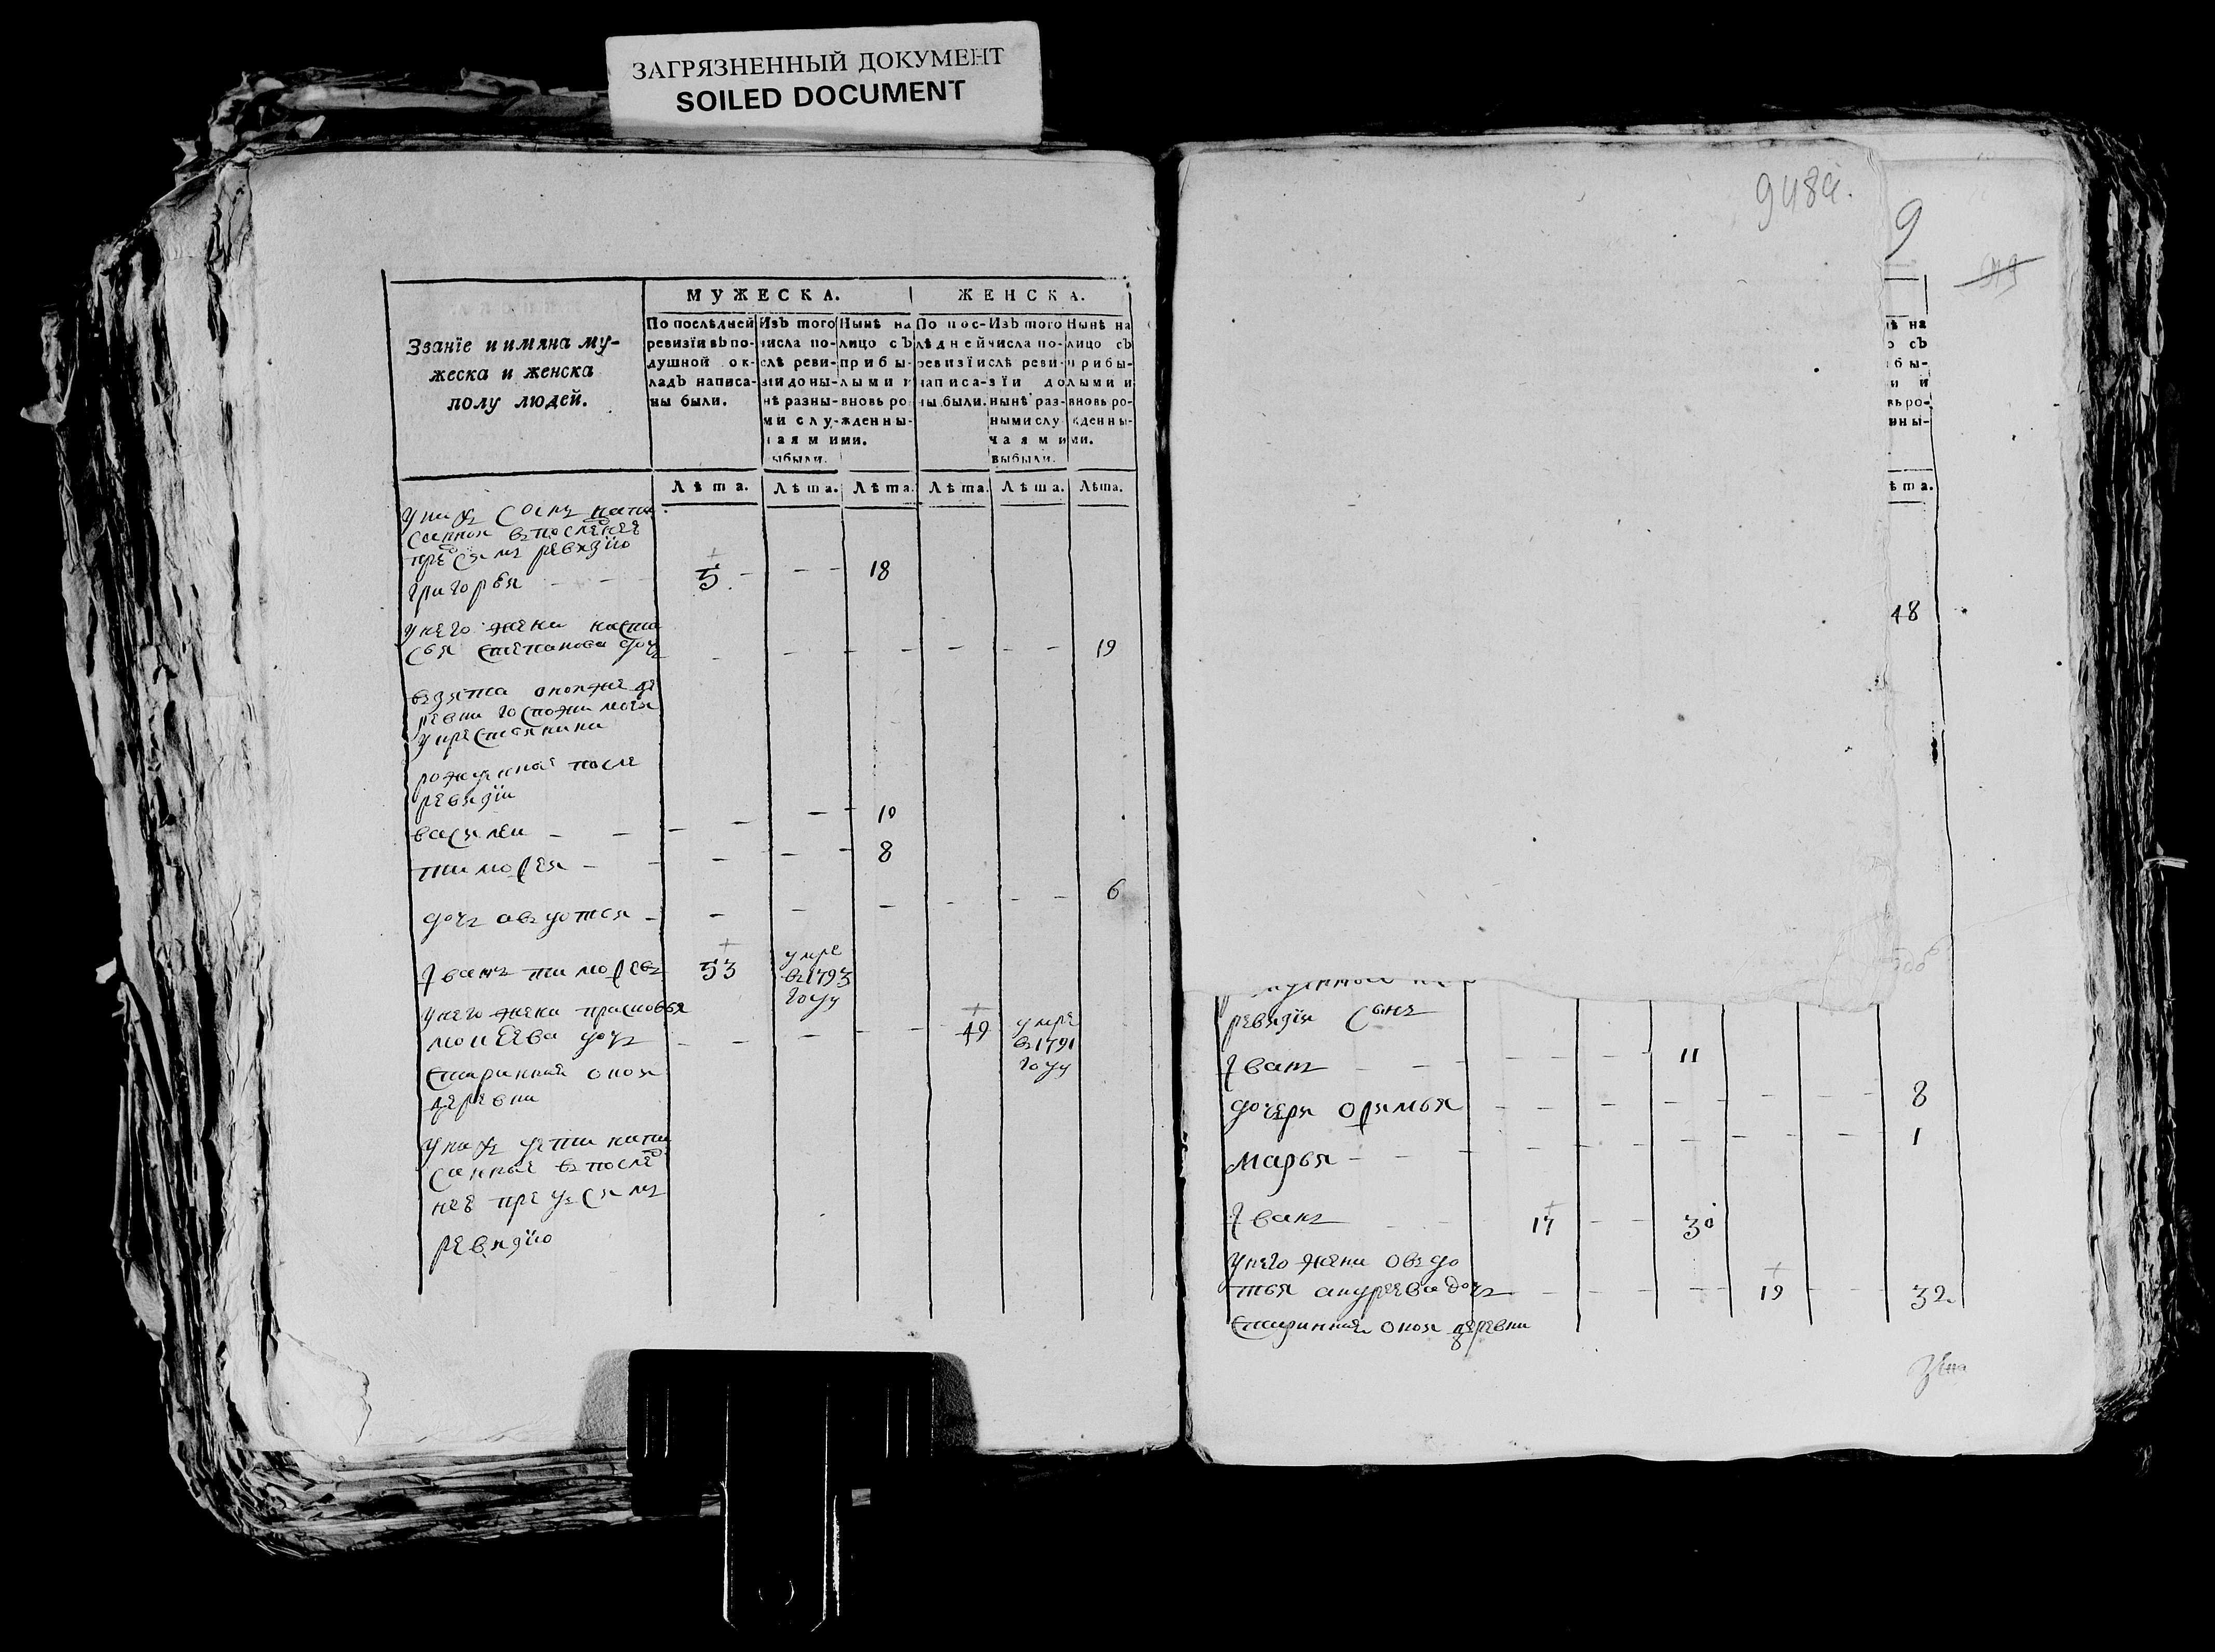 ЗАГРЯЗНЕННЫЙ ДОКУМЕНТ
SOILED DOCUMENT
Званїе и имяна му-
жеска и женска
полу людей.
МУЖЕСКА.
ЖЕНСКА.
По послѣдней
ревизїи въ по-
душной ок-
ладъ написа-
ны были.
Изъ того
числа по-
слѣ реви-
зїи до ны-
нѣ разны-
ми слу-
чаями
выбыли.
Нынѣ на
лицо съ
прибы-
лыми и
вновь ро-
жденны-
ми.
По пос-
лѣдней
ревизїи
написа-
ны были.
Изъ того
числа по-
слѣ реви-
зїи до
нынѣ раз-
ными слу
чаями
выбыли.
Нынѣ на
лицо съ
прибы-
лыми и
вновь ро-
жденны-
ми.
Лѣта. Лѣта. Лѣта. Лѣта. Лѣта. Лѣта.
у них сынъ напи
санной въ последнее
пред сим ревизїю
григореи 5 18
у него жена наста
сья степанова дочь 19
взята оной же де
ревни госпожи моеи
у крестьянина
рожденные после
ревизїи
василеи 10
тимофеи 8
дочь авдотья 6
Иванъ тимофеевъ 53 умре
въ 1793
году
у него жена прасковья
мокеева дочь 49 умре
въ 1791
году
старинная оной
деревни
у них дети напи
санные въ послед
нее пред сим
ревизїю
948а.
9
нѣ на
о съ
бы-
и и
вь ро-
нны-
ѣта.
48
ревизїи сынъ
Иванъ 11
дочери офимья 8
марья 1
Иванъ 17 30
у него жена овдо
тья андреева дочь 19 32
старинная оной деревни